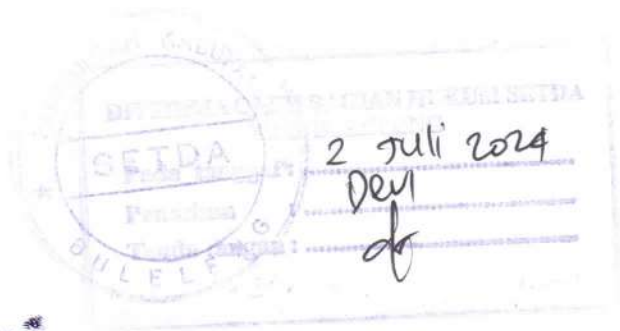 DITERIMA OLEH BAGIAN HUKUM SETDA
SETDA
Pada tanggal : 2 Juli 2024
Penerima : Devi
Tanda tangan :
BULELENG